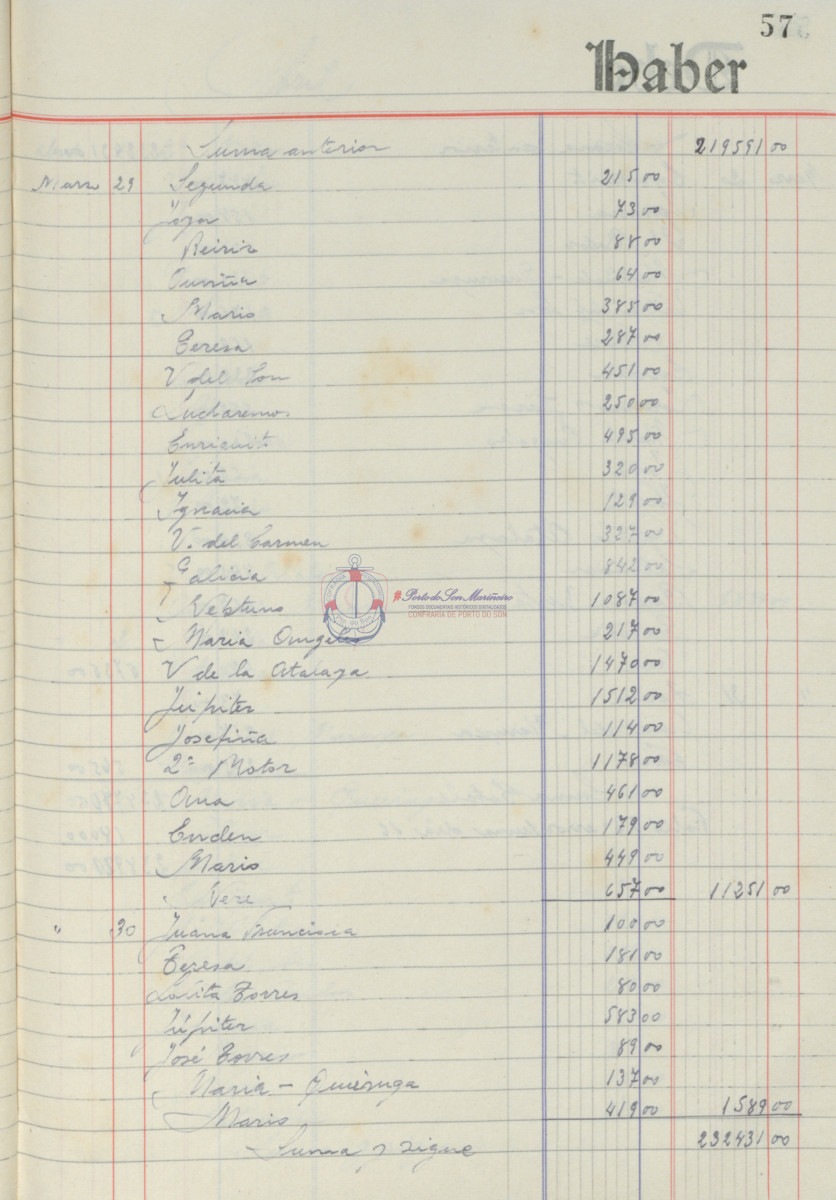 57
Haber
Suma anterior 219591 00
Marzo 29 Segunda 215 00
Joya 73 00
Reiris 88 00
64 00
Mario 385 00
Teresa 287 00
V del Son 451 00
Lucharemos 250 00
Enriquito 495 00
Julita 320 00
Ignacia 129 00
V. del Carmen 327 00
Galicia 842 00
Neptuno 1087 00
Maria Angeles 217 00
V de la Atalaya 1470 00
Júpiter 1512 00
Josefiña 114 00
2º Motor 1178 00
Ana 461 00
179 00
Mario 449 00
Vere 657 00 11251 00
" 30 Juana Francisca 100 00
Teresa 181 00
Lolita Torres 80 00
Júpiter 583 00
José Torres 89 00
Maria - Quiéruga 137 00
Mario 419 00 1589 00
Suma y sigue 232431 00
#PortodoSonMariñeiro
FONDOS DOCUMENTAIS HISTÓRICOS DIXITALIZADOS
CONFRARÍA DE PORTO DO SON